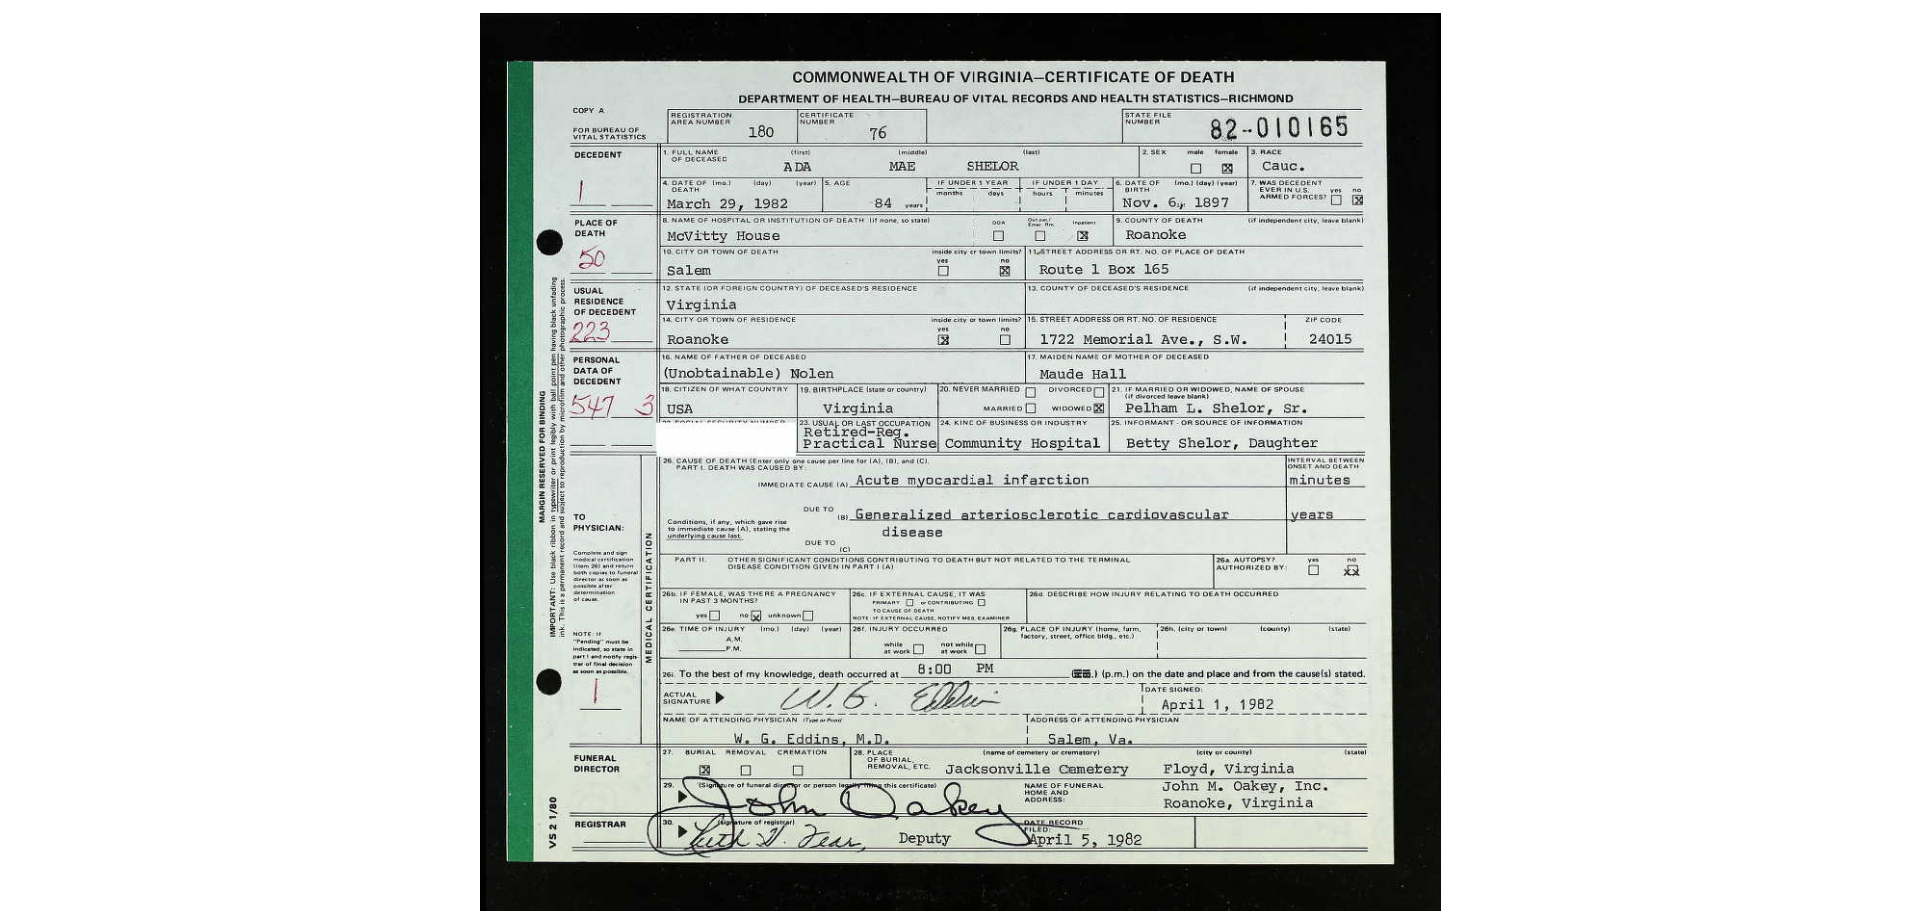 COMMONWEALTH OF VIRGINIA—CERTIFICATE OF DEATH
DEPARTMENT OF HEALTH—BUREAU OF VITAL RECORDS AND HEALTH STATISTICS—RICHMOND
COPY A
FOR BUREAU OF VITAL STATISTICS
REGISTRATION AREA NUMBER 180
CERTIFICATE NUMBER 76
STATE FILE NUMBER 82-010165
DECEDENT
1
1. FULL NAME OF DECEASED (first) (middle) (last)
ADA MAE SHELOR
2. SEX male female
3. RACE Cauc.
4. DATE OF DEATH (mo.) (day) (year)
March 29, 1982
5. AGE 84 years
IF UNDER 1 YEAR months days
IF UNDER 1 DAY hours minutes
6. DATE OF BIRTH (mo.) (day) (year)
Nov. 6, 1897
7. WAS DECEDENT EVER IN U.S. ARMED FORCES? yes no
PLACE OF DEATH
50
8. NAME OF HOSPITAL OR INSTITUTION OF DEATH (if none, so state)
McVitty House
DOA Out pat./ Emer. Rm. Inpatient
9. COUNTY OF DEATH (if independent city, leave blank)
Roanoke
10. CITY OR TOWN OF DEATH inside city or town limits? yes no
Salem
11. STREET ADDRESS OR RT. NO. OF PLACE OF DEATH
Route 1 Box 165
USUAL RESIDENCE OF DECEDENT
223
12. STATE (OR FOREIGN COUNTRY) OF DECEASED'S RESIDENCE
Virginia
13. COUNTY OF DECEASED'S RESIDENCE (if independent city, leave blank)
14. CITY OR TOWN OF RESIDENCE inside city or town limits? yes no
Roanoke
15. STREET ADDRESS OR RT. NO. OF RESIDENCE ZIP CODE
1722 Memorial Ave., S.W. 24015
PERSONAL DATA OF DECEDENT
547 3
16. NAME OF FATHER OF DECEASED
(Unobtainable) Nolen
17. MAIDEN NAME OF MOTHER OF DECEASED
Maude Hall
18. CITIZEN OF WHAT COUNTRY
USA
19. BIRTHPLACE (state or country)
Virginia
20. NEVER MARRIED DIVORCED
MARRIED WIDOWED
21. IF MARRIED OR WIDOWED, NAME OF SPOUSE (if divorced leave blank)
Pelham L. Shelor, Sr.
23. USUAL OR LAST OCCUPATION
Retired-Reg.
Practical Nurse
24. KIND OF BUSINESS OR INDUSTRY
Community Hospital
25. INFORMANT - OR SOURCE OF INFORMATION
Betty Shelor, Daughter
MARGIN RESERVED FOR BINDING
IMPORTANT: Use black ribbon in typewriter or print legibly with ball point pen having black unfading
ink. This is a permanent record and subject to reproduction by microfilm and other photographic process.
TO PHYSICIAN:
Complete and sign medical certification (item 26) and return both copies to funeral director as soon as possible after determination of cause.
NOTE: If "Pending" must be indicated, so state in part I and notify registrar of final decision as soon as possible.
1
MEDICAL CERTIFICATION
26. CAUSE OF DEATH (Enter only one cause per line for (A), (B), and (C).
PART I. DEATH WAS CAUSED BY:
INTERVAL BETWEEN ONSET AND DEATH
IMMEDIATE CAUSE (A) Acute myocardial infarction minutes
Conditions, if any, which gave rise to immediate cause (A), stating the underlying cause last.
DUE TO (B) Generalized arteriosclerotic cardiovascular years
disease
DUE TO (C)
PART II. OTHER SIGNIFICANT CONDITIONS CONTRIBUTING TO DEATH BUT NOT RELATED TO THE TERMINAL
DISEASE CONDITION GIVEN IN PART I (A)
26a. AUTOPSY? AUTHORIZED BY: yes no
26b. IF FEMALE, WAS THERE A PREGNANCY IN PAST 3 MONTHS?
yes no unknown
26c. IF EXTERNAL CAUSE, IT WAS
PRIMARY or CONTRIBUTING
TO CAUSE OF DEATH
NOTE: IF EXTERNAL CAUSE, NOTIFY MED. EXAMINER
26d. DESCRIBE HOW INJURY RELATING TO DEATH OCCURRED
26e. TIME OF INJURY (mo.) (day) (year)
A.M.
P.M.
26f. INJURY OCCURRED
while at work not while at work
26g. PLACE OF INJURY (home, farm, factory, street, office bldg., etc.)
26h. (city or town) (county) (state)
26i. To the best of my knowledge, death occurred at 8:00 PM (p.m.) on the date and place and from the cause(s) stated.
ACTUAL SIGNATURE W. G. Eddins
DATE SIGNED:
April 1, 1982
NAME OF ATTENDING PHYSICIAN (Type or Print)
W. G. Eddins, M.D.
ADDRESS OF ATTENDING PHYSICIAN
Salem, Va.
FUNERAL DIRECTOR
27. BURIAL REMOVAL CREMATION
28. PLACE OF BURIAL, REMOVAL, ETC. (name of cemetery or crematory) (city or county) (state)
Jacksonville Cemetery Floyd, Virginia
29. (Signature of funeral director or person legally filing this certificate)
John Oakey
NAME OF FUNERAL HOME AND ADDRESS:
John M. Oakey, Inc.
Roanoke, Virginia
REGISTRAR
30. (signature of registrar)
Deputy
DATE RECORD FILED:
April 5, 1982
VS 2 1/80